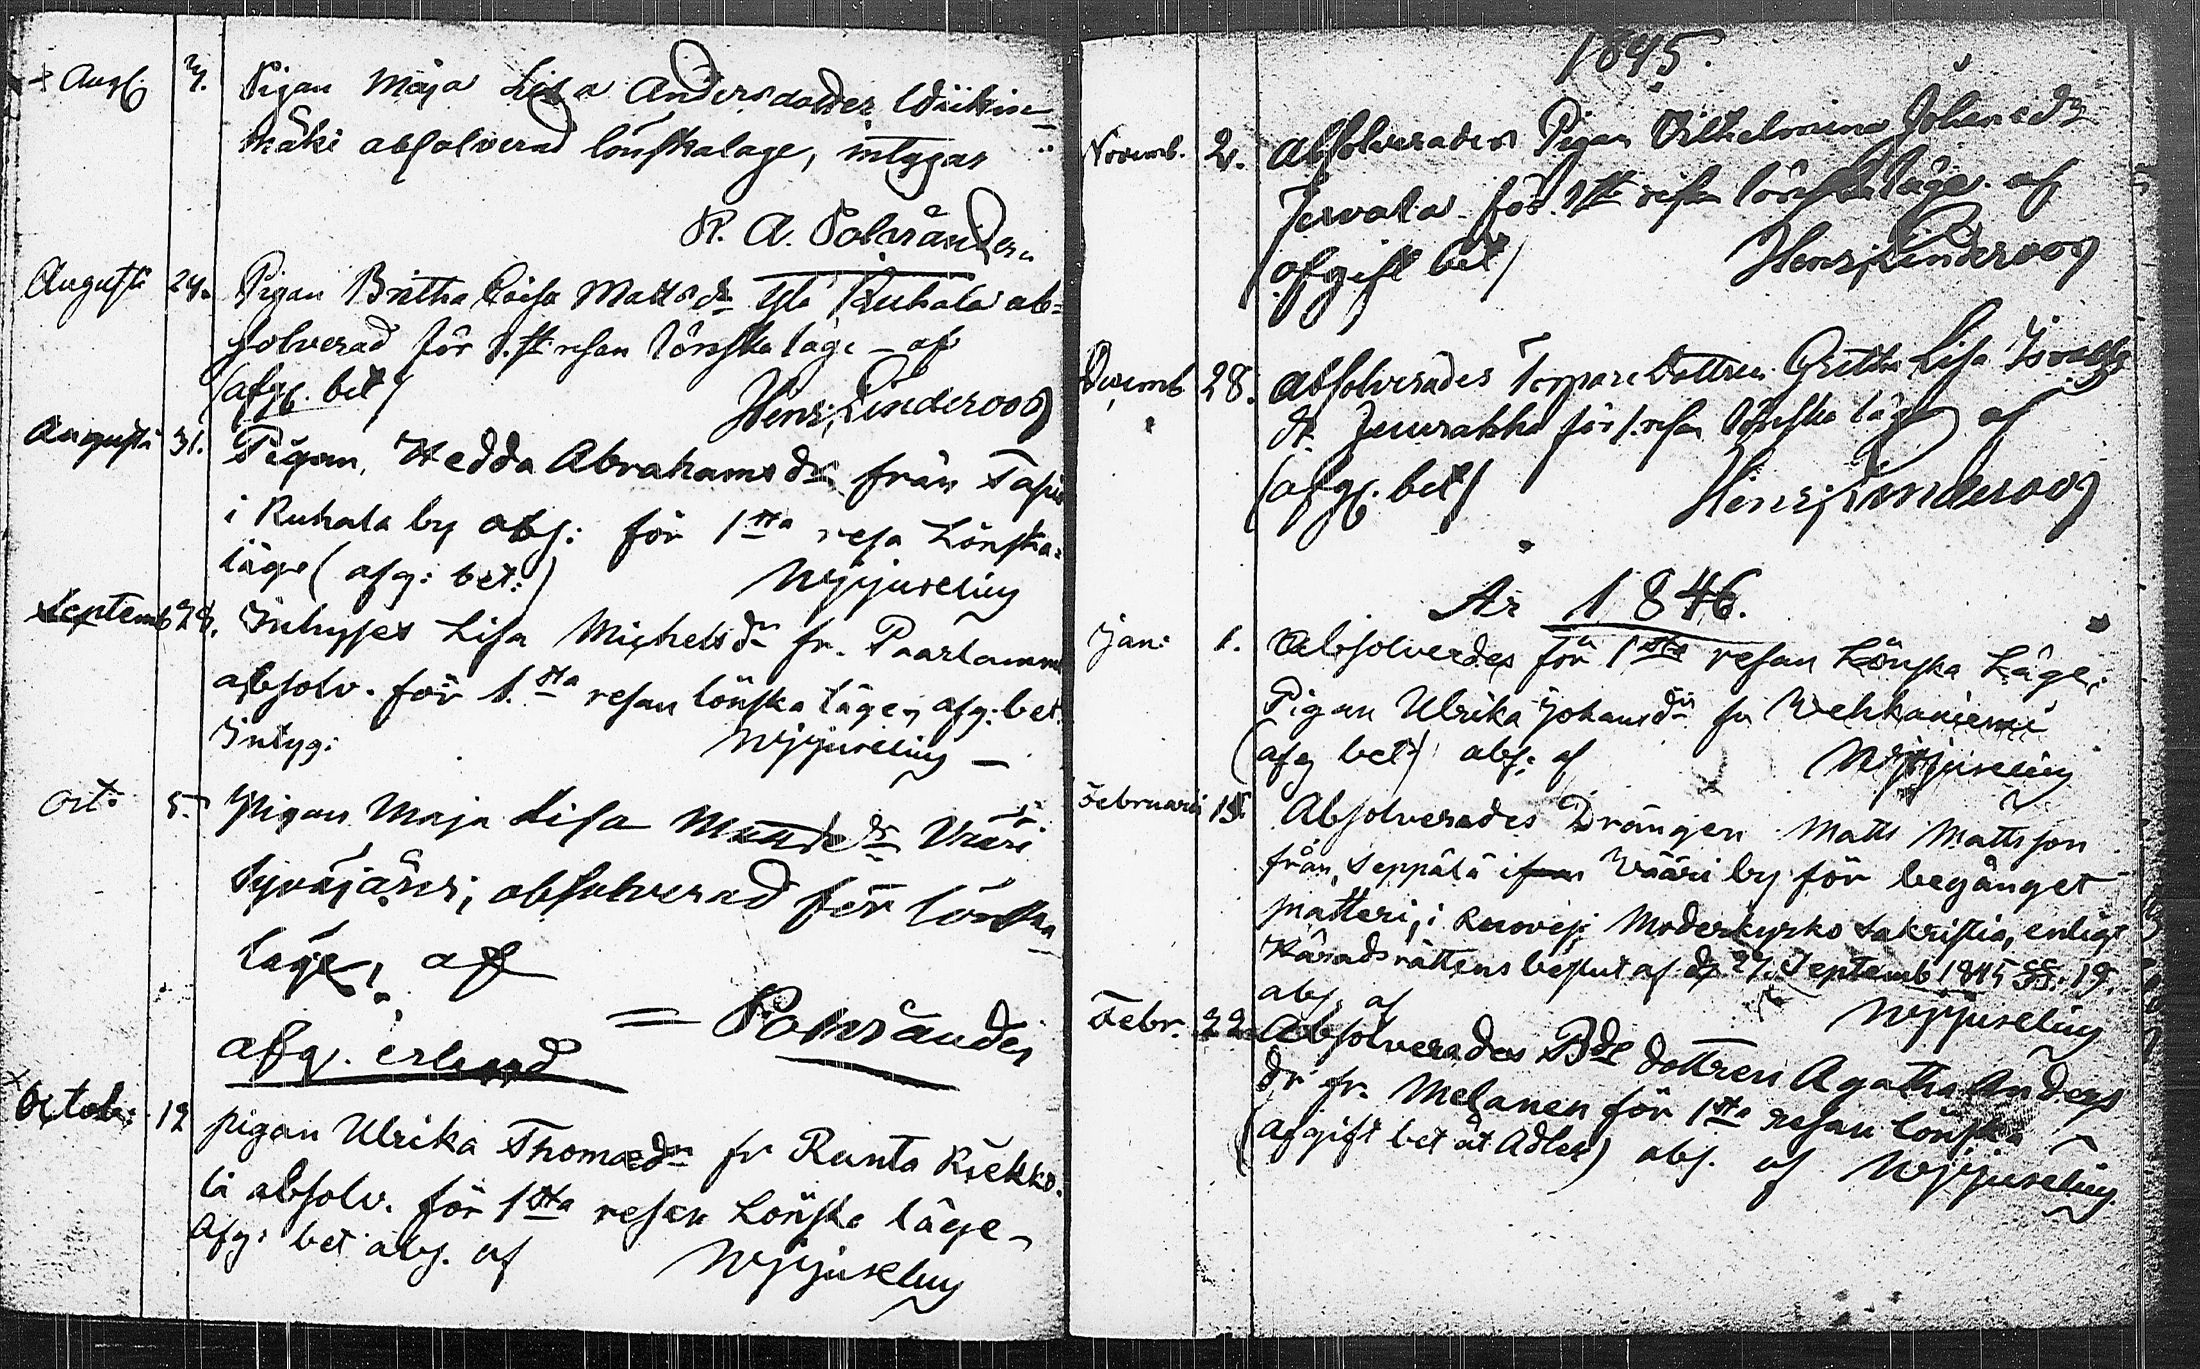 Aug. 3. Pigan Maja Lisa Andersdotter Wiikin-
mäki absolverad lönskaläge, intygar
K. A. Polviander.
Augusti 24. Pigan Britha Caisa Mattsdr Ylä Ruhala ab-
solverad för 1sta resan lönska läge - af
(afg. bet) Henr: Linderoos
Augusti 31. Pigan, Hedda Abrahamsdr från Tapio
i Ruhala by abs: för 1sta resa Lönska-
läge (afg: bet:)
Septemb 28. Inhyses Lisa Michelsdr fr. Paarlamm
absolv. för 1.sta resan lönska läge, afg: bet.
Intyg:
Oct: 5. Pigan Maja Lisa Wääri
Syväjärvi, absolverad för lönska
läge, af
= Polviander
afg. erlagd
Octob: 12 pigan Ulrika Thomædr fr Ranta Kiekko-
la absolv. för 1sta resan Lönska läge -
Afg: bet abs. af
1845.
Novemb. 2. Absolverades Pigan Vilhelmina Johansdr
för 1sta resan lönska läge af
(afgift bet) Henr: Linderoos
Decemb 28. Absolverades Torpare Dottren Gretha Lisa Israels
dr för 1. resan Lönska läge af
(afg. bet) Henr: Linderoos
År 1846.
Jan: 1. Absolverdes för 1sta resan Lönska Läge,
Pigan Ulrika Johansdr fr Wehkaniemi
(afg bet) abs: af
Februarii 15. Absolverades Drängen Matts Mattsson
från, Seppälä i Wääri by för begånget
snatteri, i Ruovesi Moderkyrko Sakristia, enligt
Häradsrättens beslut af d. 27. Septemb 1845 §§. 19.
abs. af
Febr. 22 Absolverades Bde dottren Agatha Anders
dr fr. Melanen för 1sta resan lönska
(afgift bet åt Adler) abs. af